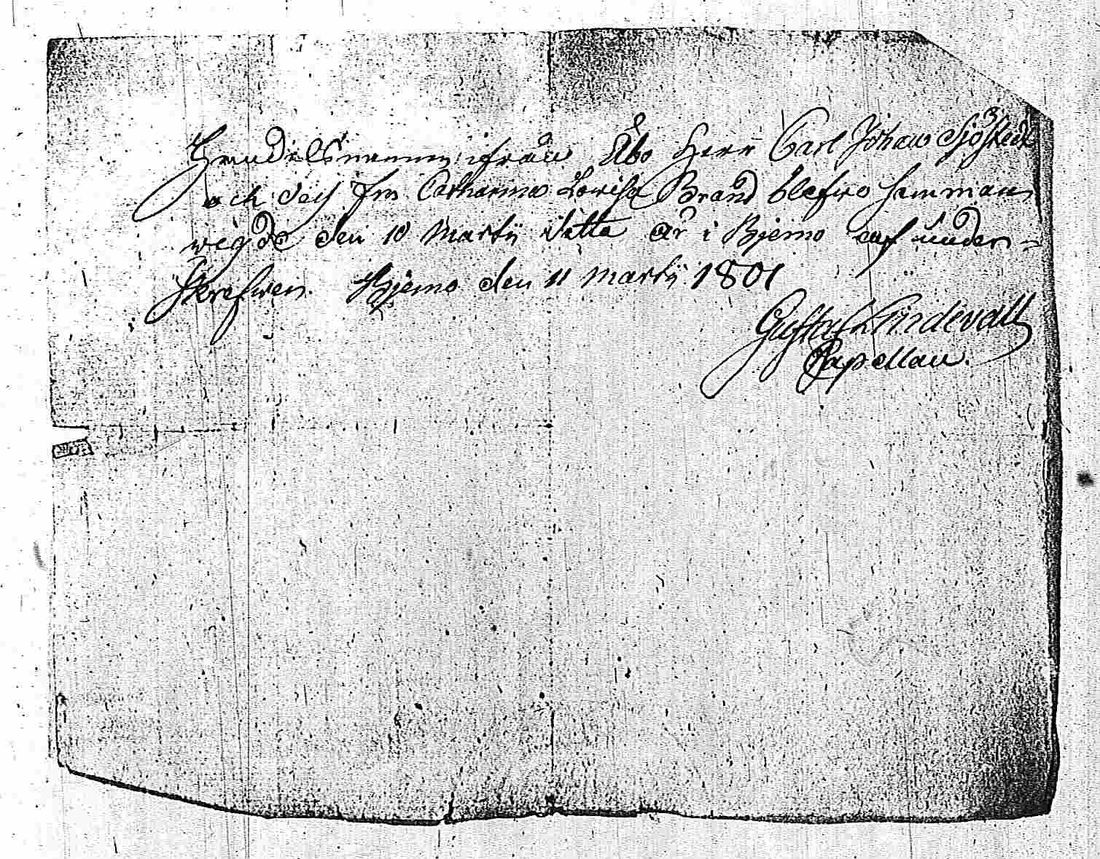 Handelsmannen ifrån Åbo Herr Carl Johan Sjöstedt
och dess fru Catharina Lovisa Brand blefwo samman
wigde den 10 Martij detta år i Bjerno af under-
skrefwen. Bjerno den 11 Martij 1801
Gustaf Lindevall
Capellan.